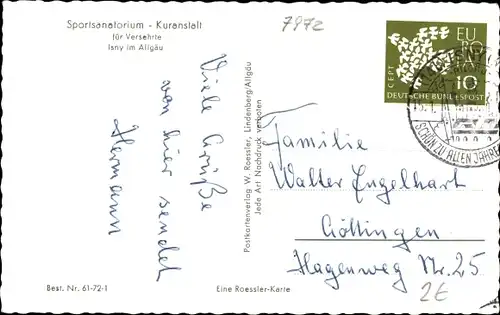 Sportsanatorium - Kuranstalt
für Versehrte
Isny im Allgäu
7972
EU
RO
PA
CEPT
10
DEUTSCHE BUNDESPOST
SCHÖN ZU ALLEN JAHRE
Viele Grüße
von hier sendet
Hermann
Postkartenverlag W. Roessler, Lindenberg/Allgäu
Jede Art Nachdruck verboten
Familie
Walter Engelhart
Göttingen
Hagenweg Nr. 25
2€
Best. Nr. 61-72-1
Eine Roessler-Karte